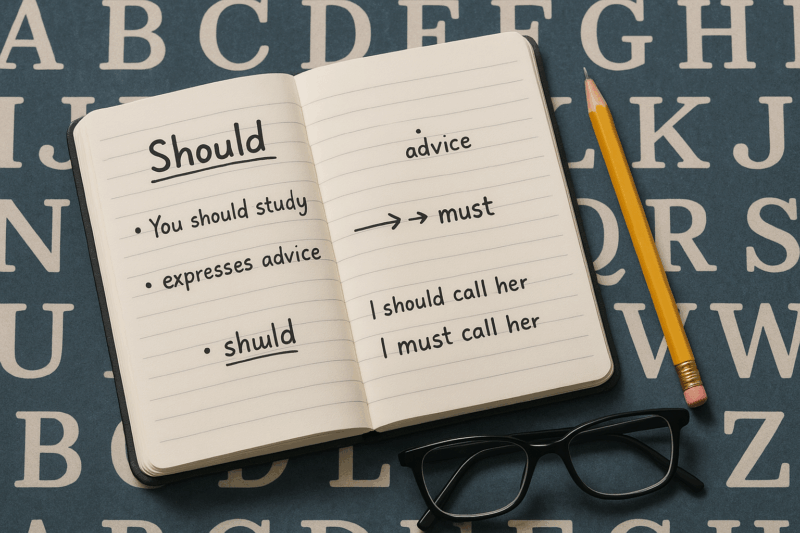 A B C D E F G H
I J K J
N Q R S
U V W
B D L Z
Should
• You should study
• expresses advice
• shwld
advice
→ → must
I should call her
I must call her